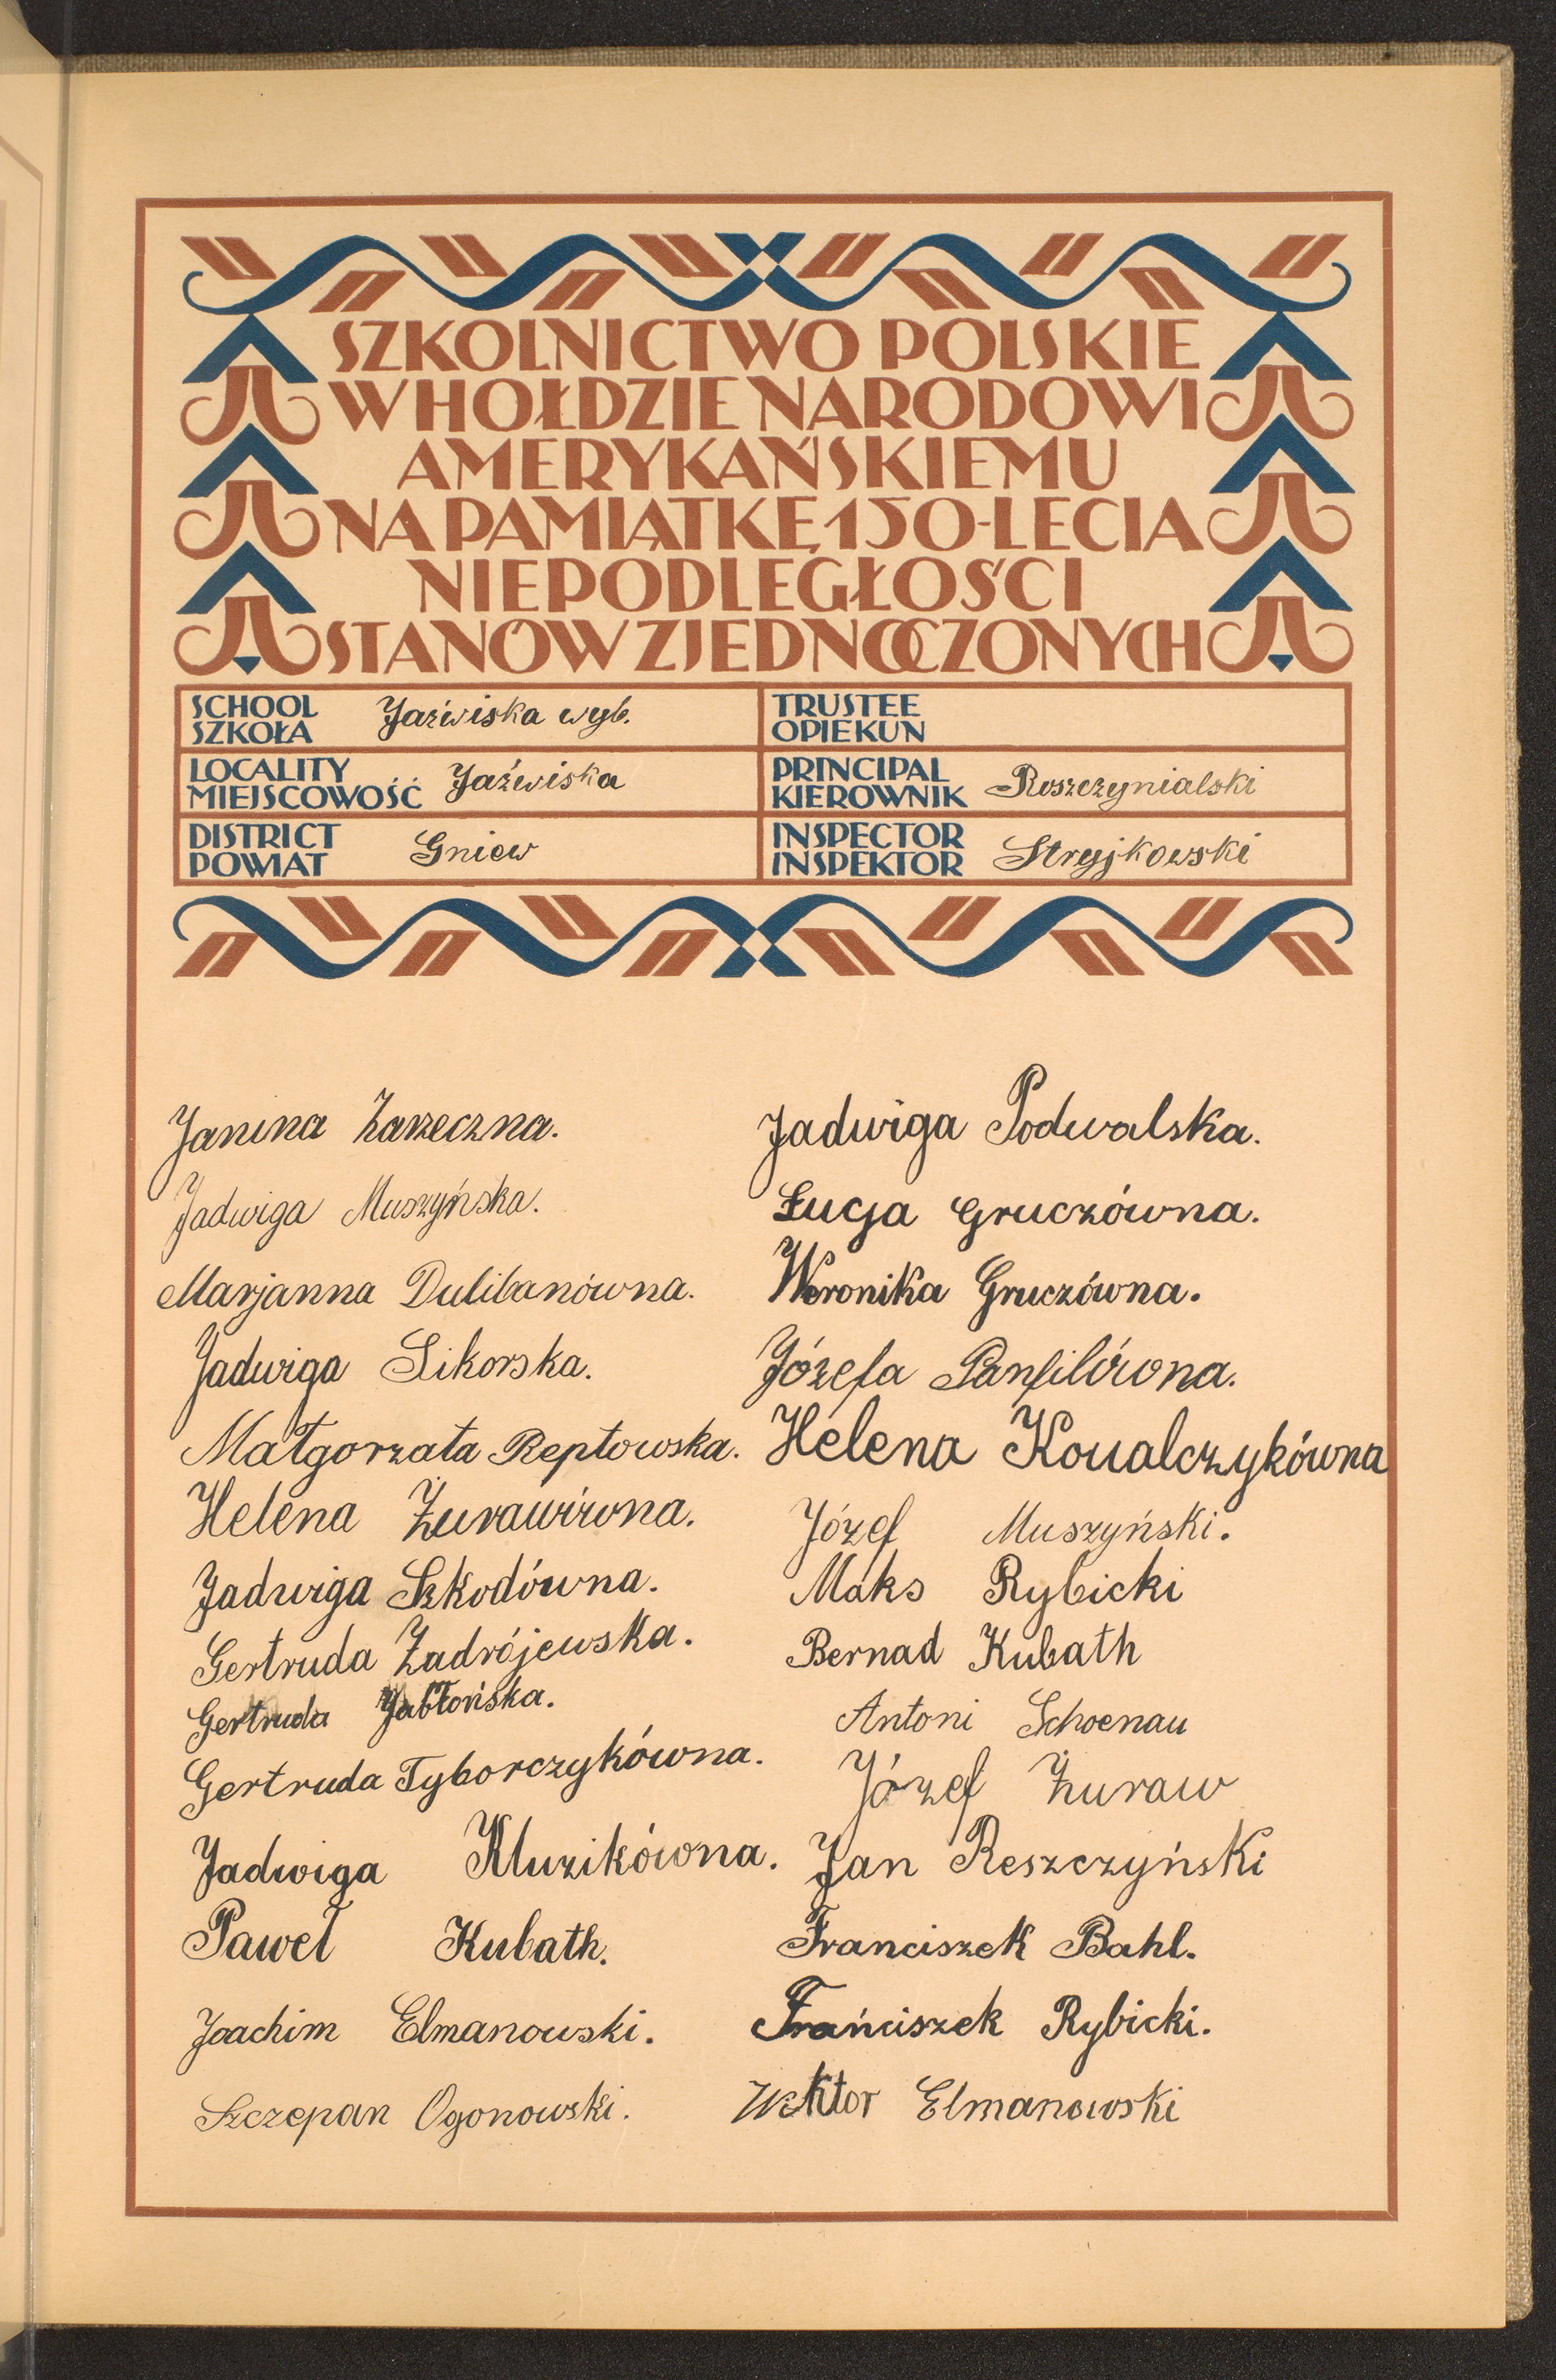 SZKOLNICTWO POLSKIE
W HOŁDZIE NARODOWI
AMERYKAŃSKIEMU
NA PAMIĄTKĘ 150-LECIA
NIEPODLEGŁOŚCI
STANÓW ZJEDNOCZONYCH
SCHOOL
SZKOŁA
Jaźwiska wyb.
TRUSTEE
OPIEKUN
LOCALITY
MIEJSCOWOŚĆ
Jaźwiska
PRINCIPAL
KIEROWNIK
Roszczynialski
DISTRICT
POWIAT
Gniew
INSPECTOR
INSPEKTOR
Stryjkowski
Janina Zarzeczna.
Jadwiga Muszyńska.
Marjanna Dulibanówna.
Jadwiga Sikorska.
Małgorzata Reptowska.
Helena Żurawiówna.
Jadwiga Szkodówna.
Gertruda Zadrójewska.
Gertruda Jabłońska.
Gertruda Tyborczykówna.
Jadwiga Kluzikówna.
Paweł Kubath.
Joachim Elmanowski.
Szczepan Ogonowski.
Jadwiga Podwalska.
Łucja Gruczówna.
Weronika Gruczówna.
Józefa Panfilówna.
Helena Kowalczykówna
Józef Muszyński.
Maks Rybicki
Bernad Kubath
Antoni Schoenau
Józef Żuraw
Jan Reszczyński
Franciszek Bahl.
Frańciszek Rybicki.
Wiktor Elmanowski